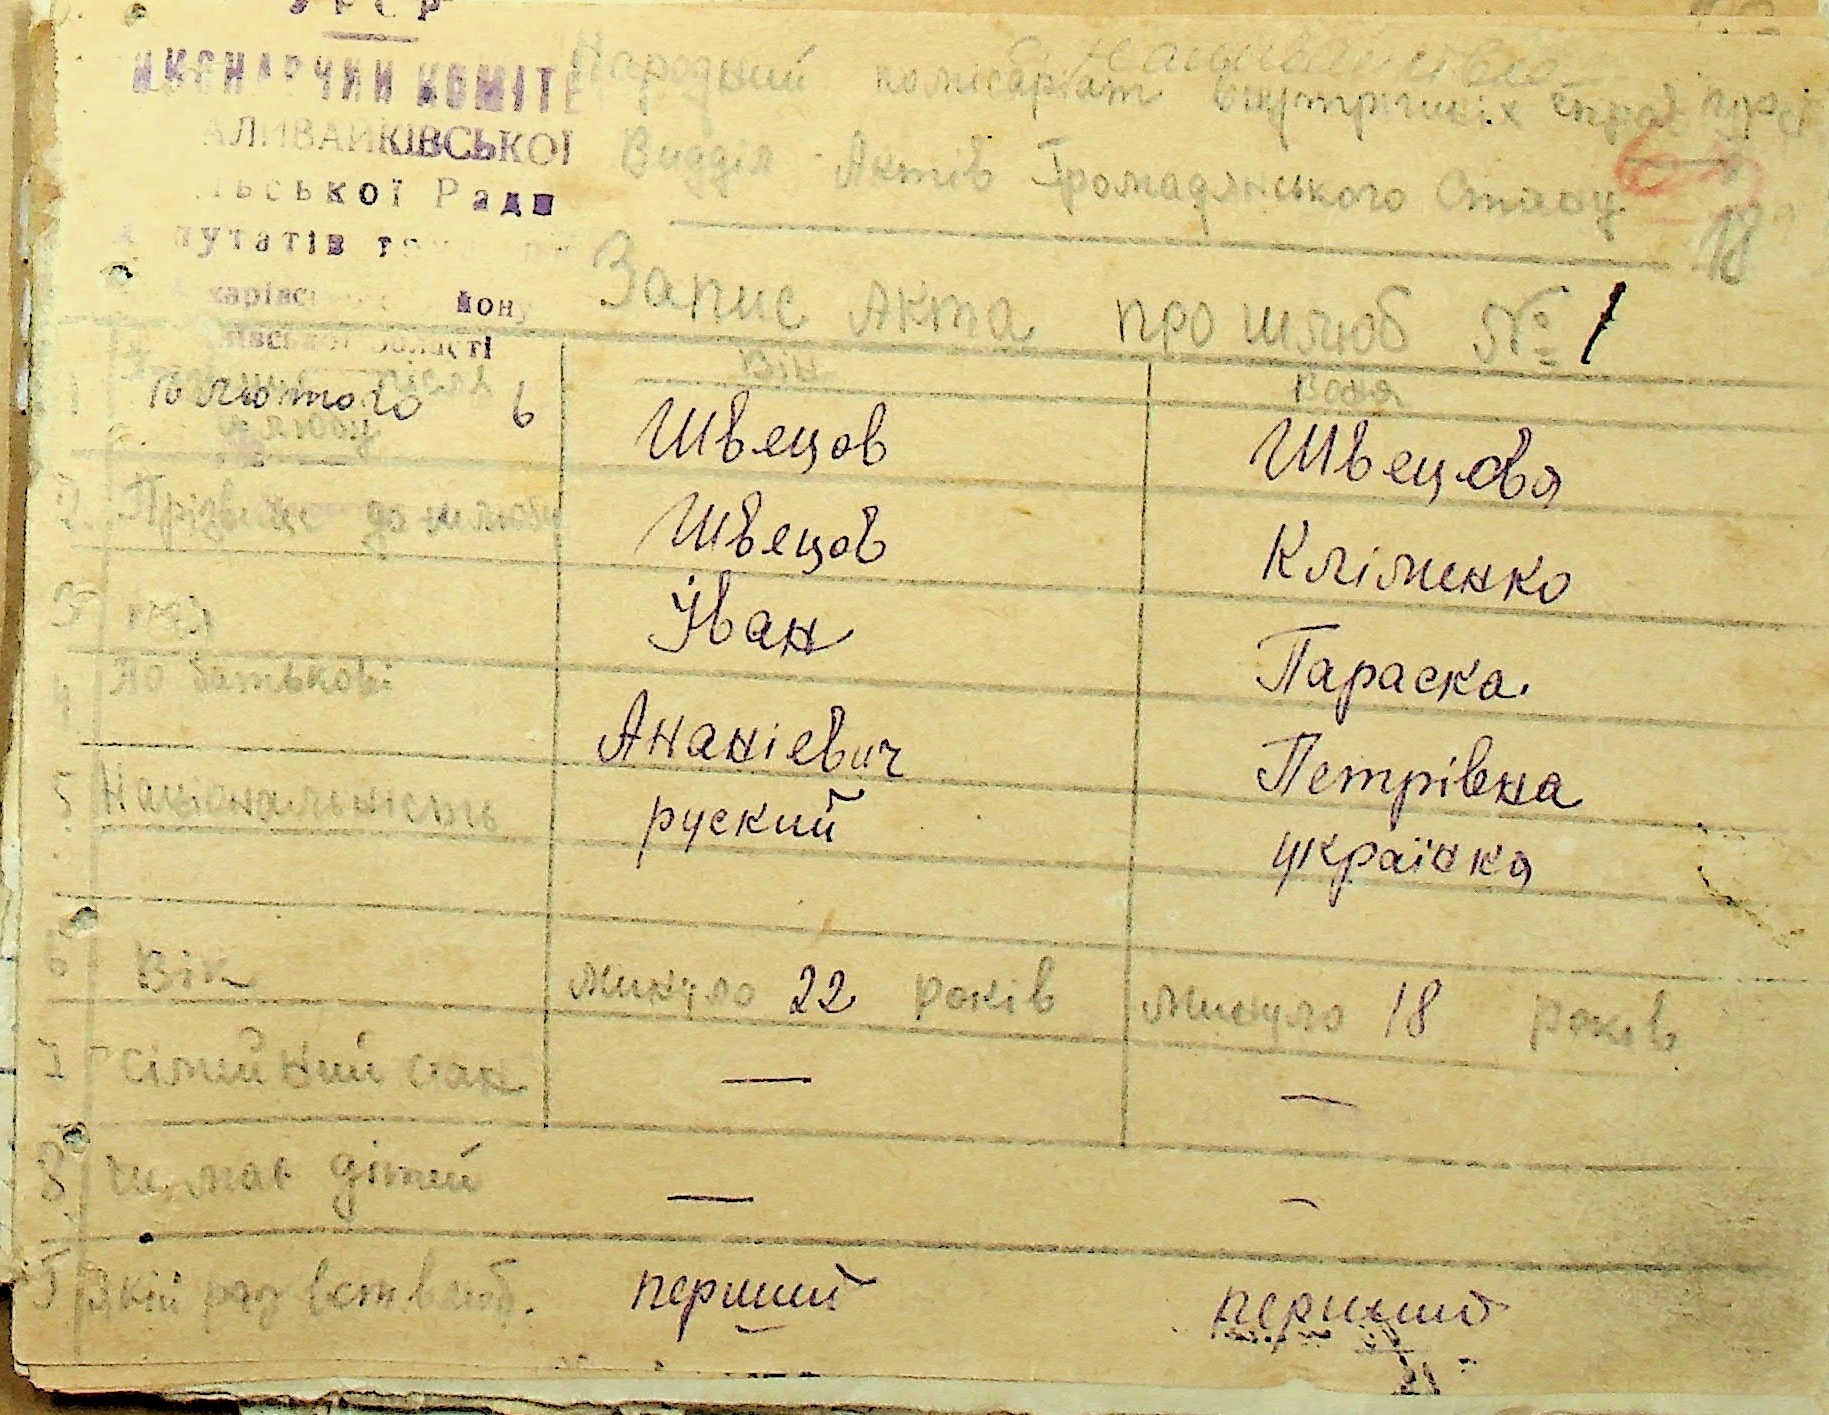 УРСР
ВИКОНАВЧИЙ КОМІТЕ
АЛИВАЙКІВСЬКОЇ
ЛЬСЬКОЇ Ради
путатів
Народний комісаріат внутрішніх справ УРСР
Видділ Актів Громадянського Стану
18
Запис Акта про шлюб № 1
Він Вона
1 після шлюбу Швецов Швецова
лютого
2 Прізвище до шлюбу Швецов Кліменко
3 імя Іван Параска
4 По батькові Ананіевич Петрівна
5 Національність руский українка
6 Вік Минуло 22 років Минуло 18 років
7 сімейний стан — —
8 чи має дітей — —
який раз вст в шлюб. перший перший